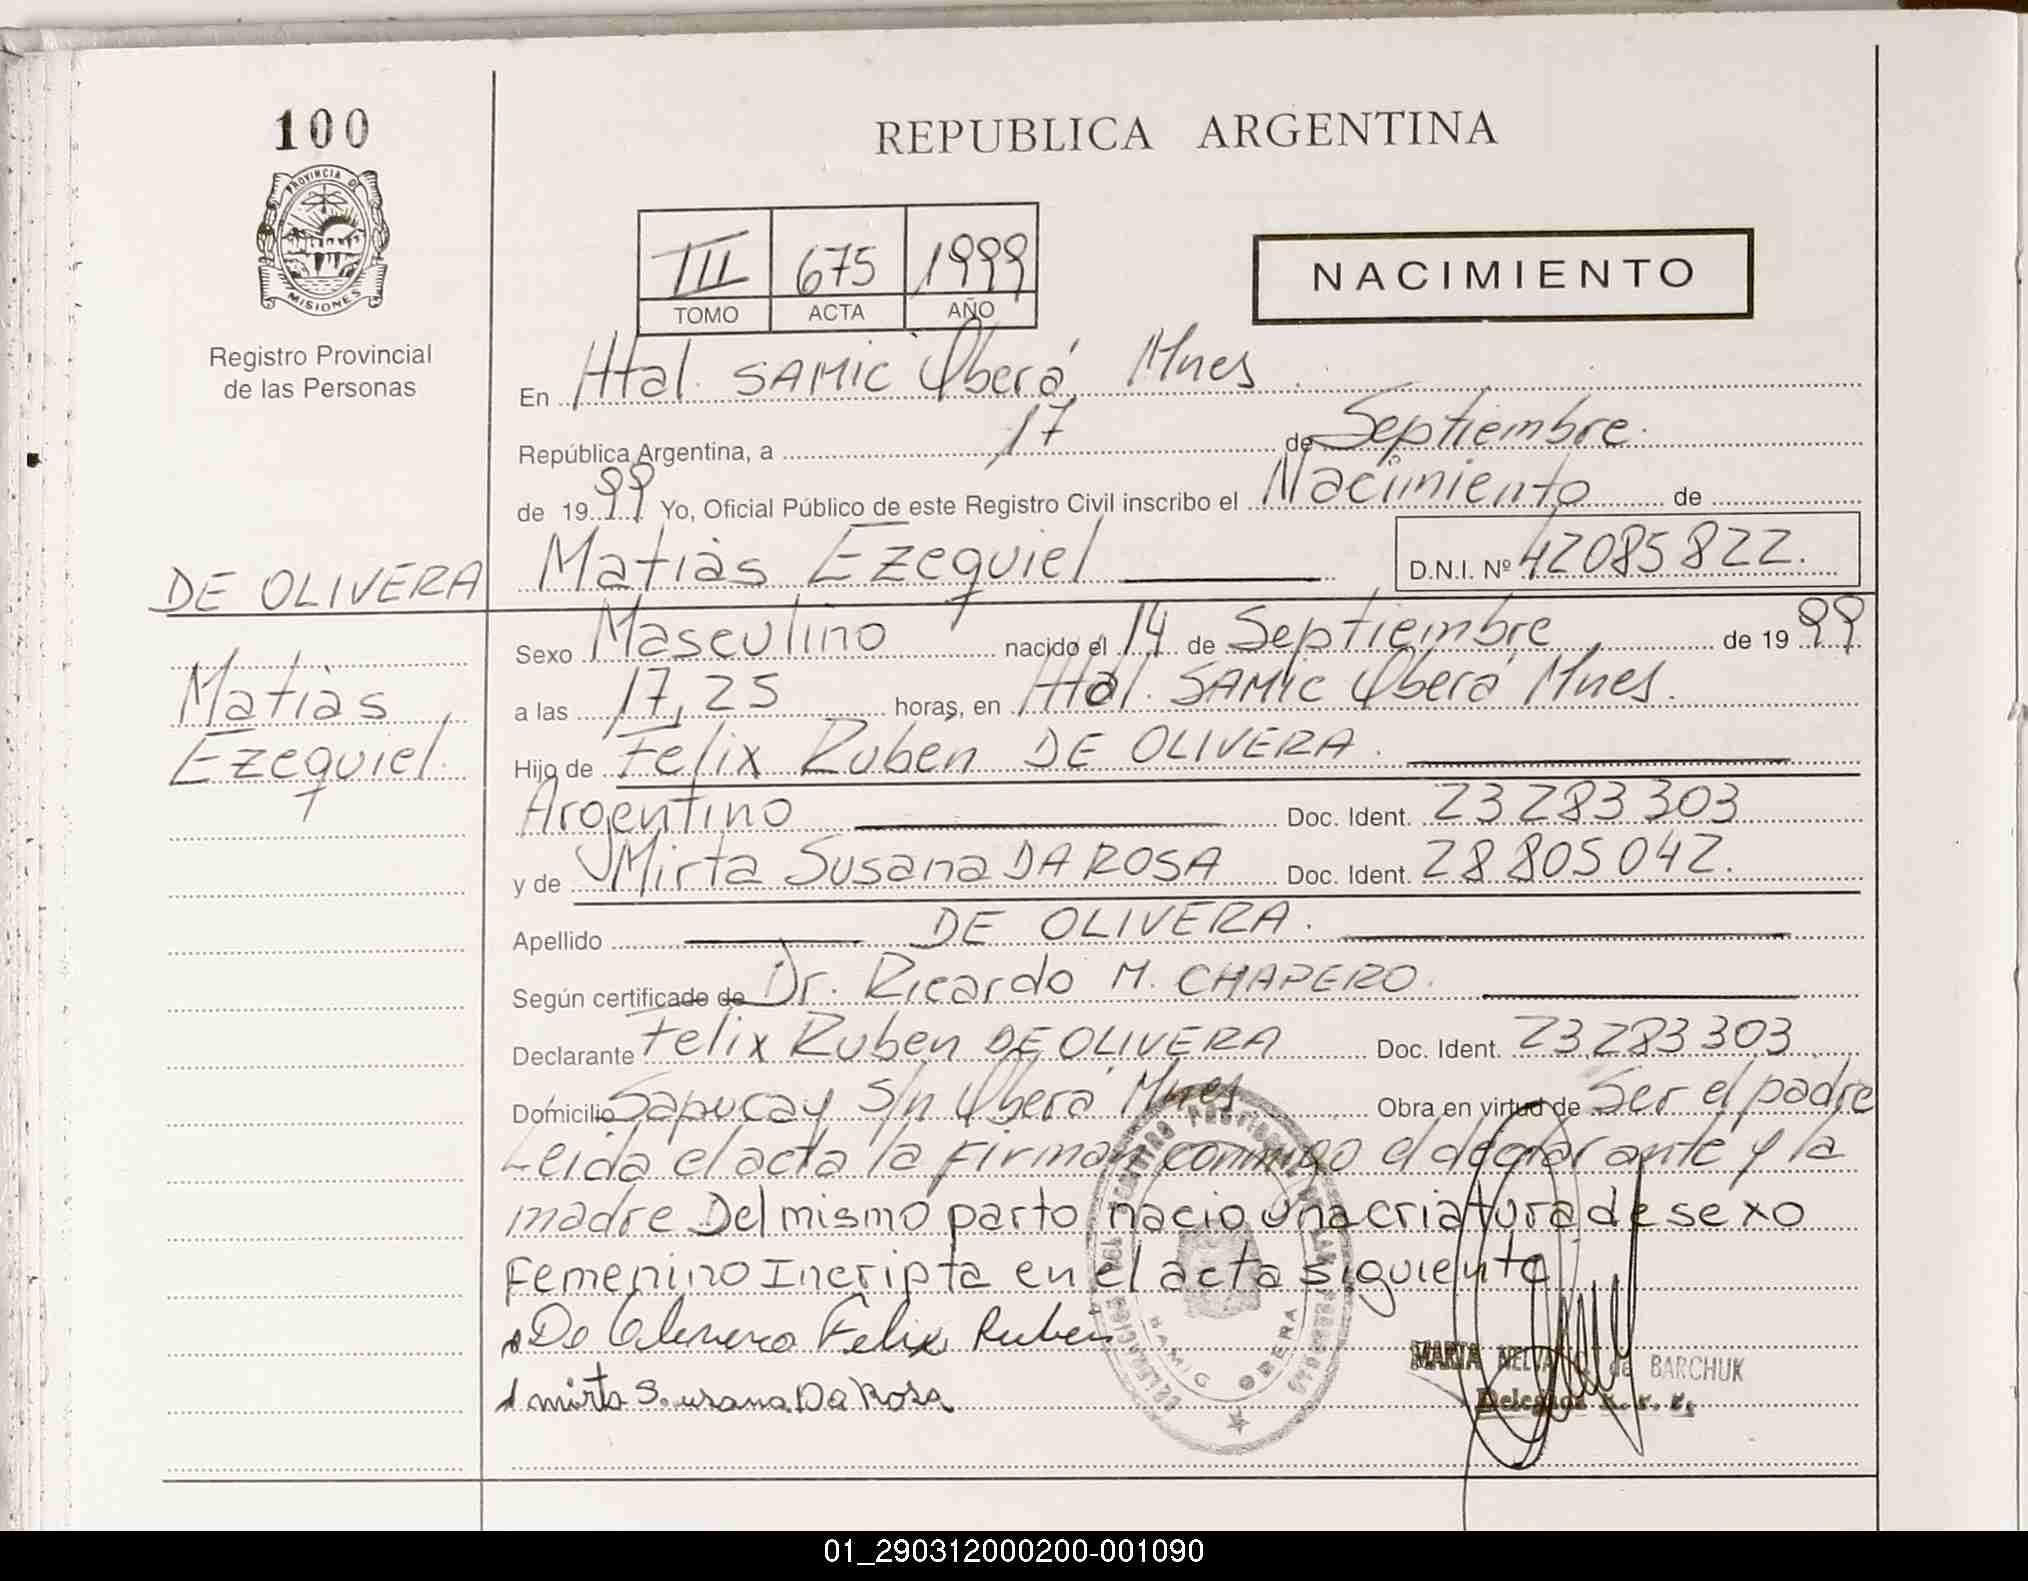 100
REPUBLICA ARGENTINA
PROVINCIA DE
MISIONES
Registro Provincial
de las Personas
III 675 1999
TOMO ACTA AÑO
NACIMIENTO
En Htal. SAMIC Oberá, Mnes
República Argentina, a 17 de Septiembre.
de 1999 Yo, Oficial Público de este Registro Civil inscribo el Nacimiento de
Matiàs Ezequiel D.N.I. Nº 42085822.
DE OLIVERA
Matiàs
Ezequiel.
Sexo Masculino nacido el 14 de Septiembre de 1999
a las 17,25 horas, en Htal. SAMIC Oberá Mnes.
Hijo de Felix Ruben DE OLIVERA.
Argentino Doc. Ident. 23283303
y de Mirta Susana DA ROSA Doc. Ident. 28805042.
Apellido DE OLIVERA.
Según certificado de Dr. Ricardo M. CHAPERO.
Declarante Felix Ruben DE OLIVERA Doc. Ident. 23283303
Domicilio Sapucay S/n Oberá Mnes Obra en virtud de Ser el padre
Leida el acta la firman conmigo el declarante y la
madre Del mismo parto nacio una criatura de sexo
Femenino Incripta en el acta siguiente
De Felix Ruben
mirta Susana Da Rosa
SAMIC OBERA
MARTA NELVA de BARCHUK
01_290312000200-001090